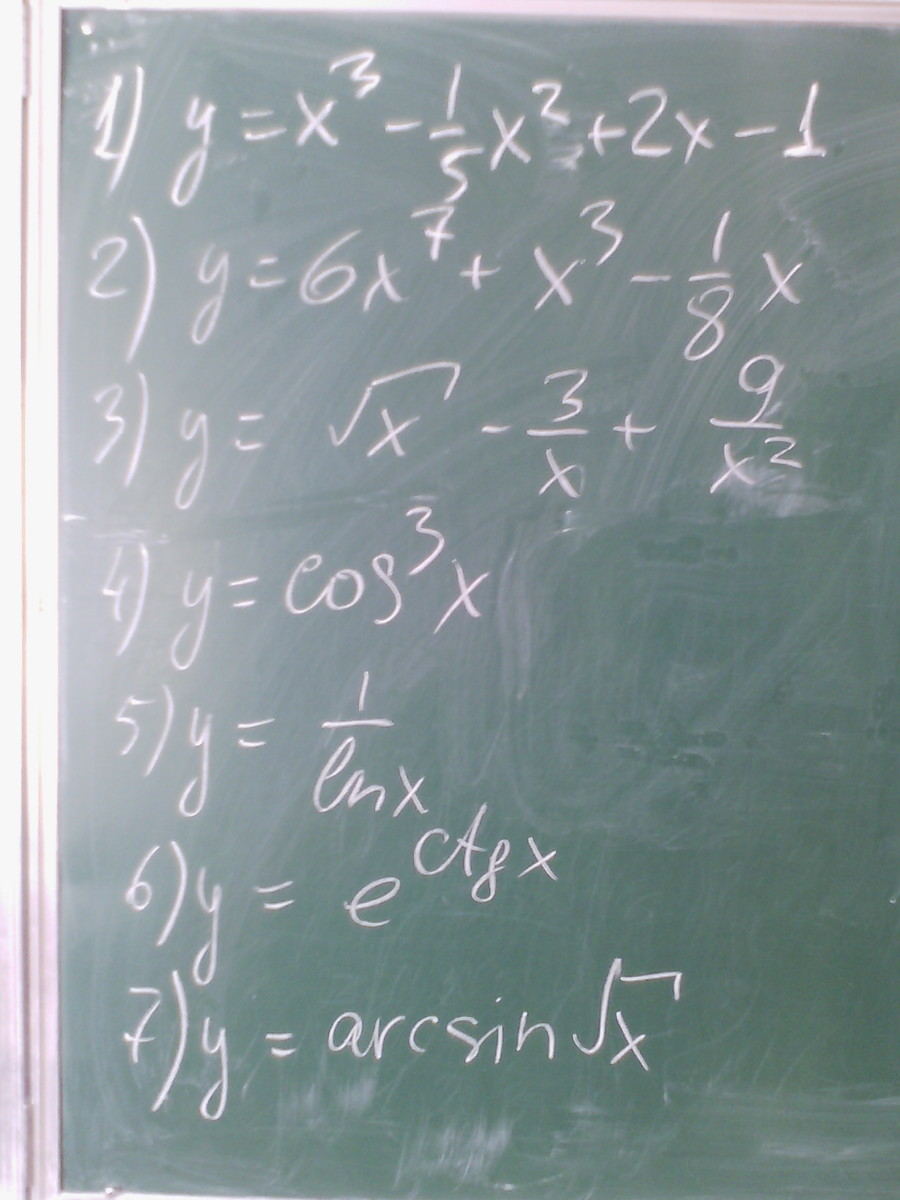 1) y = x³ - 1/5 x² + 2x - 1
2) y = 6x⁷ + x³ - 1/8 x
3) y = √x - 3/x + 9/x²
4) y = cos³x
5) y = 1/lnx
6) y = e^(ctgx)
7) y = arcsin√x